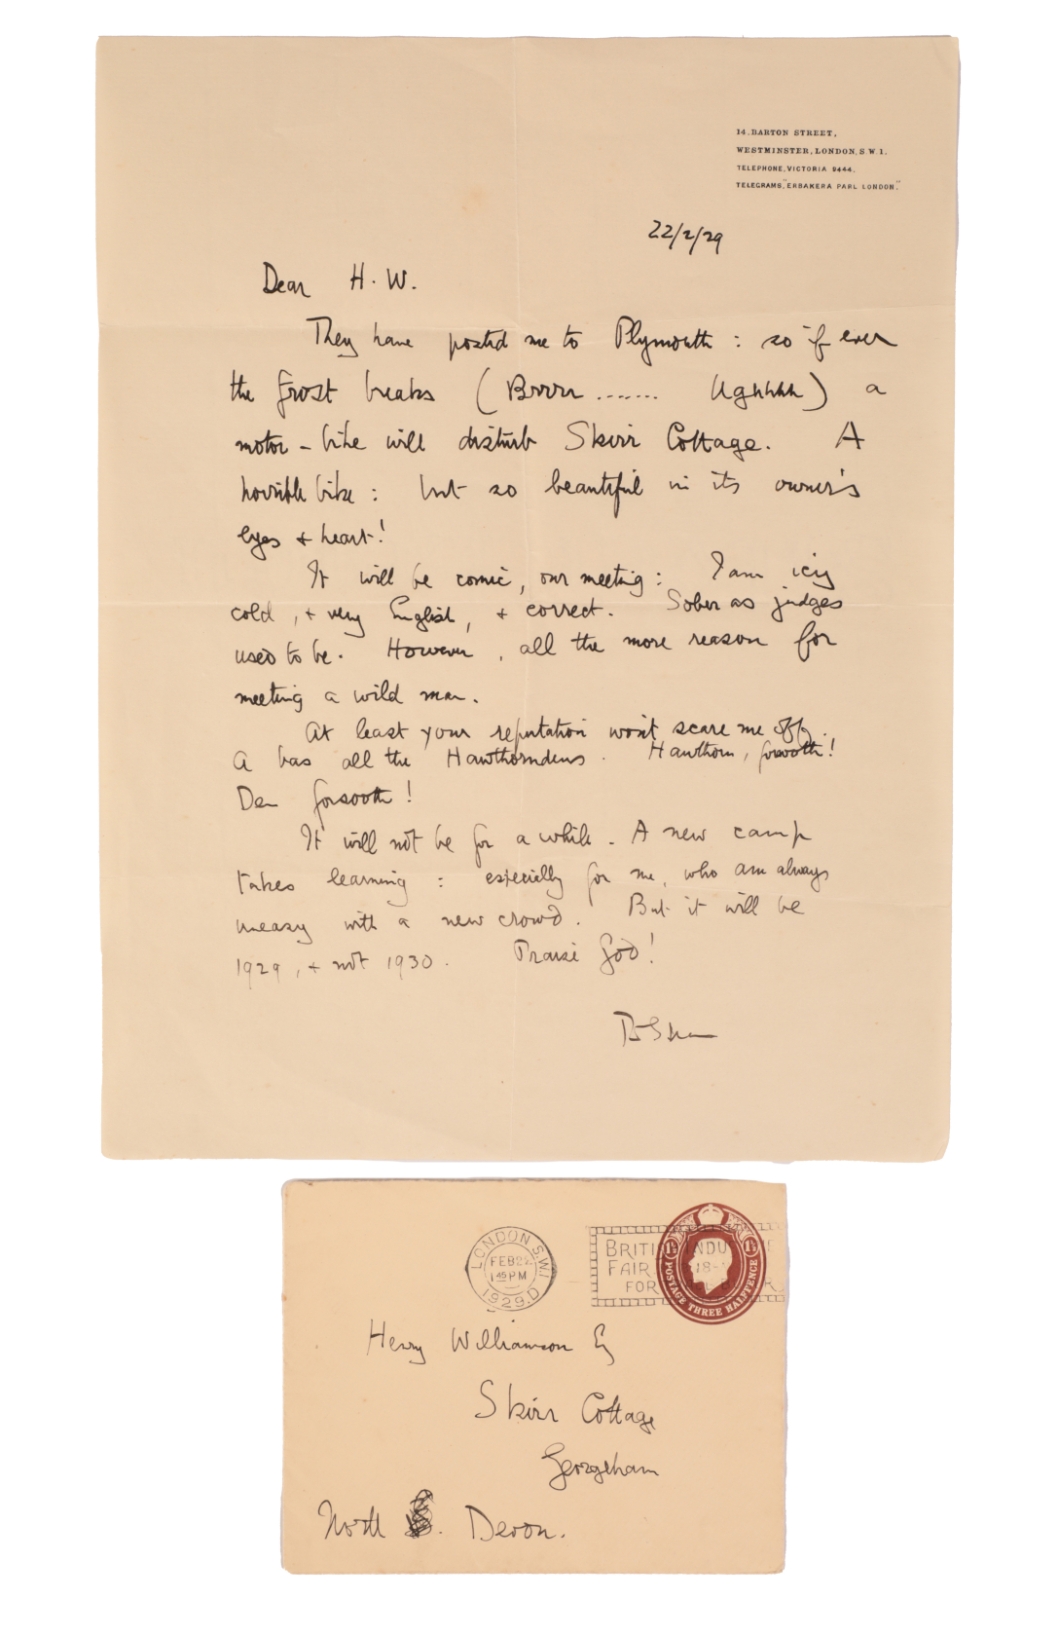 14, BARTON STREET,
WESTMINSTER, LONDON, S.W.1.
TELEPHONE, VICTORIA 9444.
TELEGRAMS, "ERBAKERA PARL LONDON."
22/2/29
Dear H. W.
They have posted me to Plymouth : so if ever
the frost breaks (Brrrr ....... Ughhhh) a
motor-bike will disturb Skirr Cottage. A
horrible bike : but so beautiful in its owner's
eyes + heart!
It will be comic, our meeting : I am icy
cold, + very English, + correct. Sober as judges
used to be. However, all the more reason for
meeting a wild man.
At least your reputation won't scare me off.
A bas all the Hawthorndens. Hawthorn, forsooth!
Den forsooth!
It will not be for a while. A new camp
takes learning : especially for me, who am always
uneasy with a new crowd. But it will be
1929, + not 1930. Praise God!
LONDON.S.W.1
FEB 22
1 45 PM
1929.D
BRITI INDU
FAIR 18-
FOR
1½ 1½
POSTAGE THREE HALFPENCE
Henry Williamson Esq
Skirr Cottage
Georgeham
North Devon.